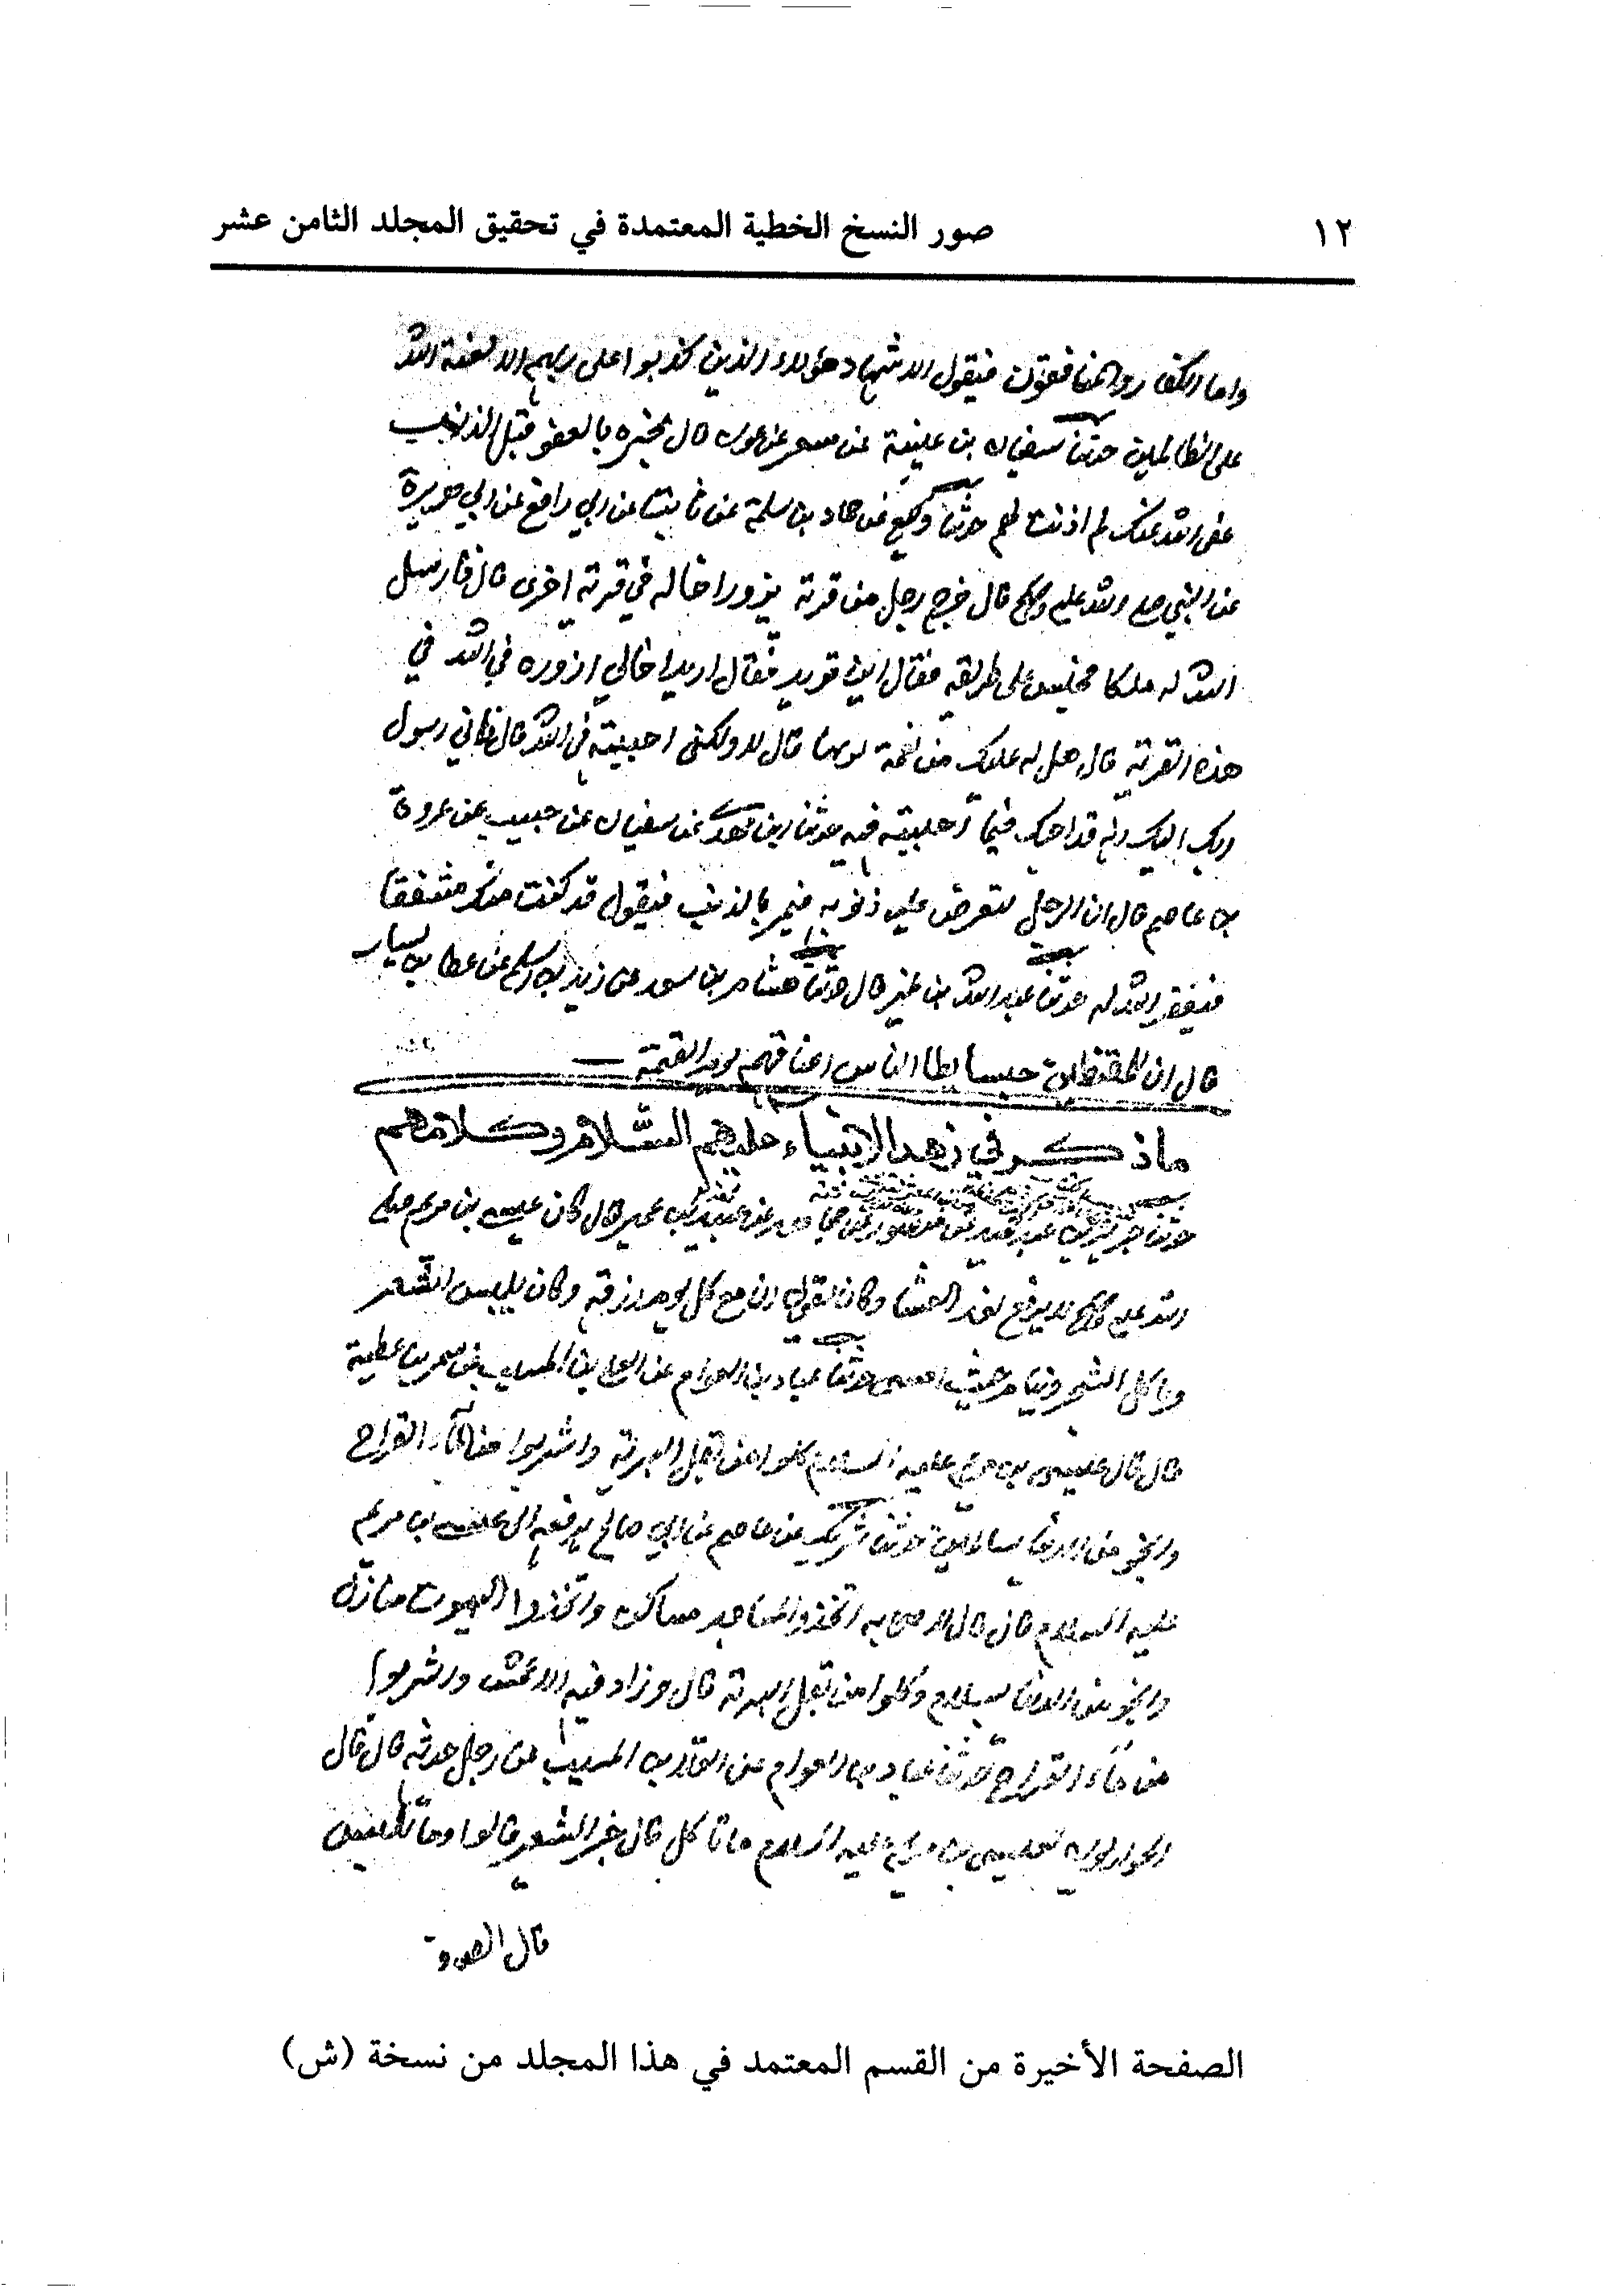 ١٢ صور النسخ الخطية المعتمدة في تحقيق المجلد الثامن عشر
واما الكفار والمنافقون فيقول الاشهاد هؤلاء الذين كذبوا على ربهم الا لعنة الله
على الظالمين حدثنا سفيان بن عيينة عن مسعر عن عون قال يخبره بالعفو قبل الذنب
عفى الله عنك لم اذنت لهم حدثنا وكيع عن حماد بن سلمة عن ثابت عن ابي رافع عن ابي هريرة
عن النبي صلى الله عليه وسلم قال خرج رجل من قرية يزور اخا له في قرية اخرى قال فارسل
الله له ملكا فجلس على طريقه فقال اين تريد فقال اريد اخا لي ازوره في الله في
هذه القرية قال هل له عليك من نعمة تربها قال لا ولكني احببته في الله قال فاني رسول
ربك اليك انه قد احبك فيما احببته فيه حدثنا ابن مهدي عن سفيان عن حبيب عن عروة
بن عامر قال ان الرجل لتعرض عليه ذنوبه فيمر بالذنب فيقول قد كنت منك مشفقا
فيغفر الله له حدثنا عبد الله بن نمير قال حدثنا هشام بن سعد عن زيد بن اسلم عن عطا بن يسار
قال ان للمقنطين حبسا يطا الناس اعناقهم يوم القيمة
ما ذكر في زهد الانبياء عليهم السلام وكلامهم
حدثنا جرير بن عبد الحميد عن منصور عن مجاهد عن عبيد بن عمير قال كان عيسى بن مريم صلى
الله عليه وسلم لا يرفع لغد العشا وكان يقول ان مع كل يوم رزقه وكان يلبس الشعر
وياكل الشجر وينام حيث امسى حدثنا عباد بن العوام عن العلا بن المسيب عن بن عطية
قال قال عيسى بن مريم عليه السلام كلوا من بقل البرية واشربوا من الماء القراح
وانجو من الدنيا سالمين حدثنا شريك عن عاصم عن ابي صالح يرفعه الى عيسى بن مريم
عليه السلام قال قال لاصحابه اتخذوا المساجد مساكن واتخذوا البيوت منازل
وانجو من الدنيا بسلام وكلوا من بقل البرية قال وزاد فيه الاعمش واشربوا
من ماء القراح حدثنا عباد بن العوام عن العلا بن المسيب عن رجل حدثه قال قال
الحواريون لعيسى بن مريم عليه السلام ما تاكل قال خبز الشعير قالوا وما تلبس
قال الصوف
الصفحة الأخيرة من القسم المعتمد في هذا المجلد من نسخة (ش)